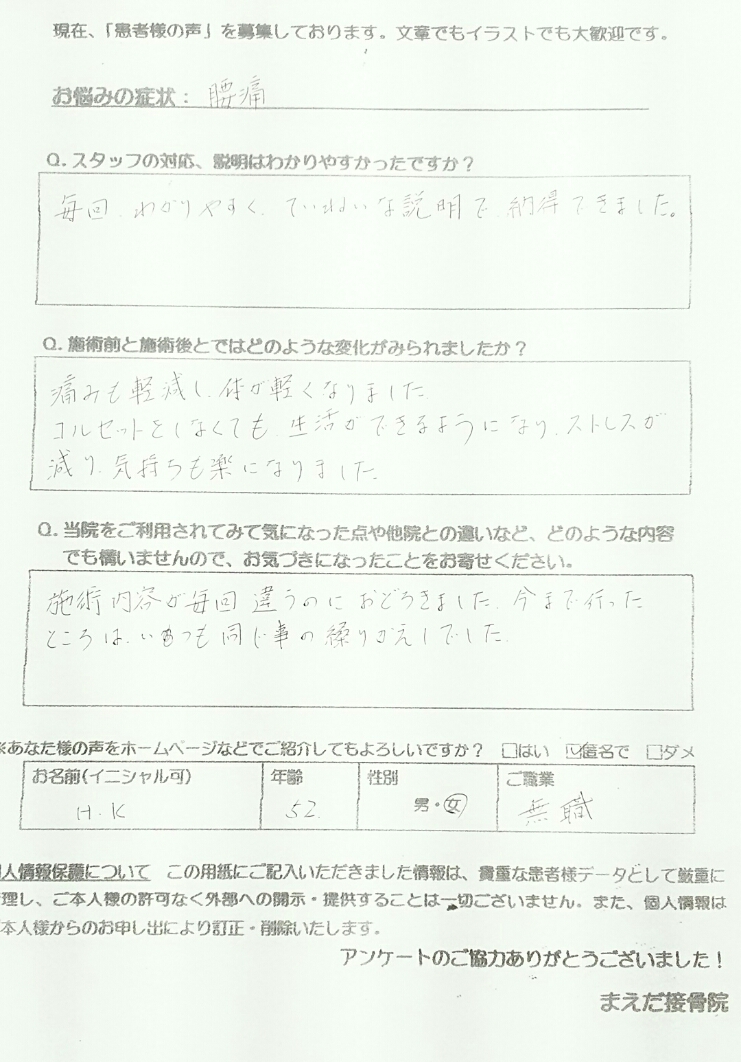 現在、「患者様の声」を募集しております。文章でもイラストでも大歓迎です。
お悩みの症状： 腰痛
Q. スタッフの対応、説明はわかりやすかったですか？
毎回、わかりやすく、ていねいな説明で、納得できました。
Q. 施術前と施術後とではどのような変化がみられましたか？
痛みも軽減し、体が軽くなりました。
コルセットをしなくても、生活ができるようになり、ストレスが
減り、気持ちも楽になりました。
Q. 当院をご利用されてみて気になった点や他院との違いなど、どのような内容
でも構いませんので、お気づきになったことをお寄せください。
施術内容が毎回違うのにおどろきました。今まで行った
ところは、いつも同じ事の繰りかえしでした。
※あなた様の声をホームページなどでご紹介してもよろしいですか？ □はい ☑匿名で □ダメ
お名前(イニシャル可) 年齢 性別 ご職業
H.K 52 男・女 無職
個人情報保護について この用紙にご記入いただきました情報は、貴重な患者様データとして厳重に
管理し、ご本人様の許可なく外部への開示・提供することは一切ございません。また、個人情報は
ご本人様からのお申し出により訂正・削除いたします。
アンケートのご協力ありがとうございました！
まえだ接骨院